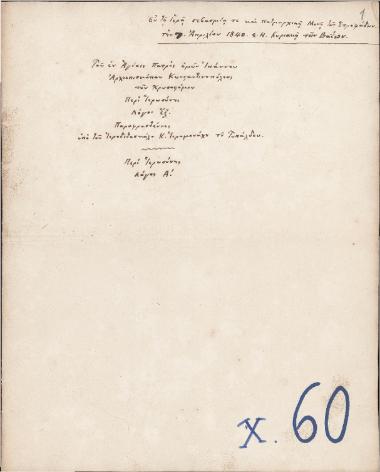 1
Ἐν τῇ ἱερᾷ σεβασμίᾳ τε καὶ Πατριαρχικῇ Μονῇ τῶν Στροφάδων.
τὴν 7. Ἀπριλίου 1840. ε.ν. Κυριακῇ τῶν Βαΐων.
Τοῦ ἐν Ἁγίοις Πατρὸς ἡμῶν Ἰωάννου
Ἀρχιεπισκόπου Κωνσταντινουπόλεως
τοῦ Χρυσοστόμου
Περὶ Ἱερωσύνης
Λόγοι ἕξ.
Παραφρασθέντες
ὑπὸ τοῦ Ἱεροδιδασκάλου Κ. Ἱερομονάχου τοῦ Τυπάλδου.
Περὶ Ἱερωσύνης
Λόγος Α΄.
χ. 60